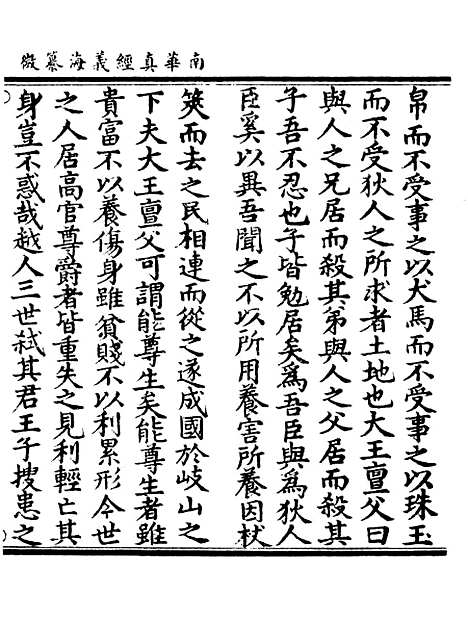 南華真經義海纂微
帛而不受事之以犬馬而不受事之以珠玉
而不受狄人之所求者土地也大王亶父曰
與人之兄居而殺其弟與人之父居而殺其
子吾不忍也子皆勉居矣爲吾臣與爲狄人
臣奚以異吾聞之不以所用養害所養因杖
筴而去之民相連而從之遂成國於岐山之
下夫大王亶父可謂能尊生矣能尊生者雖
貴富不以養傷身雖貧賤不以利累形今世
之人居高官尊爵者皆重失之見利輕亡其
身豈不惑哉越人三世弑其君王子搜患之